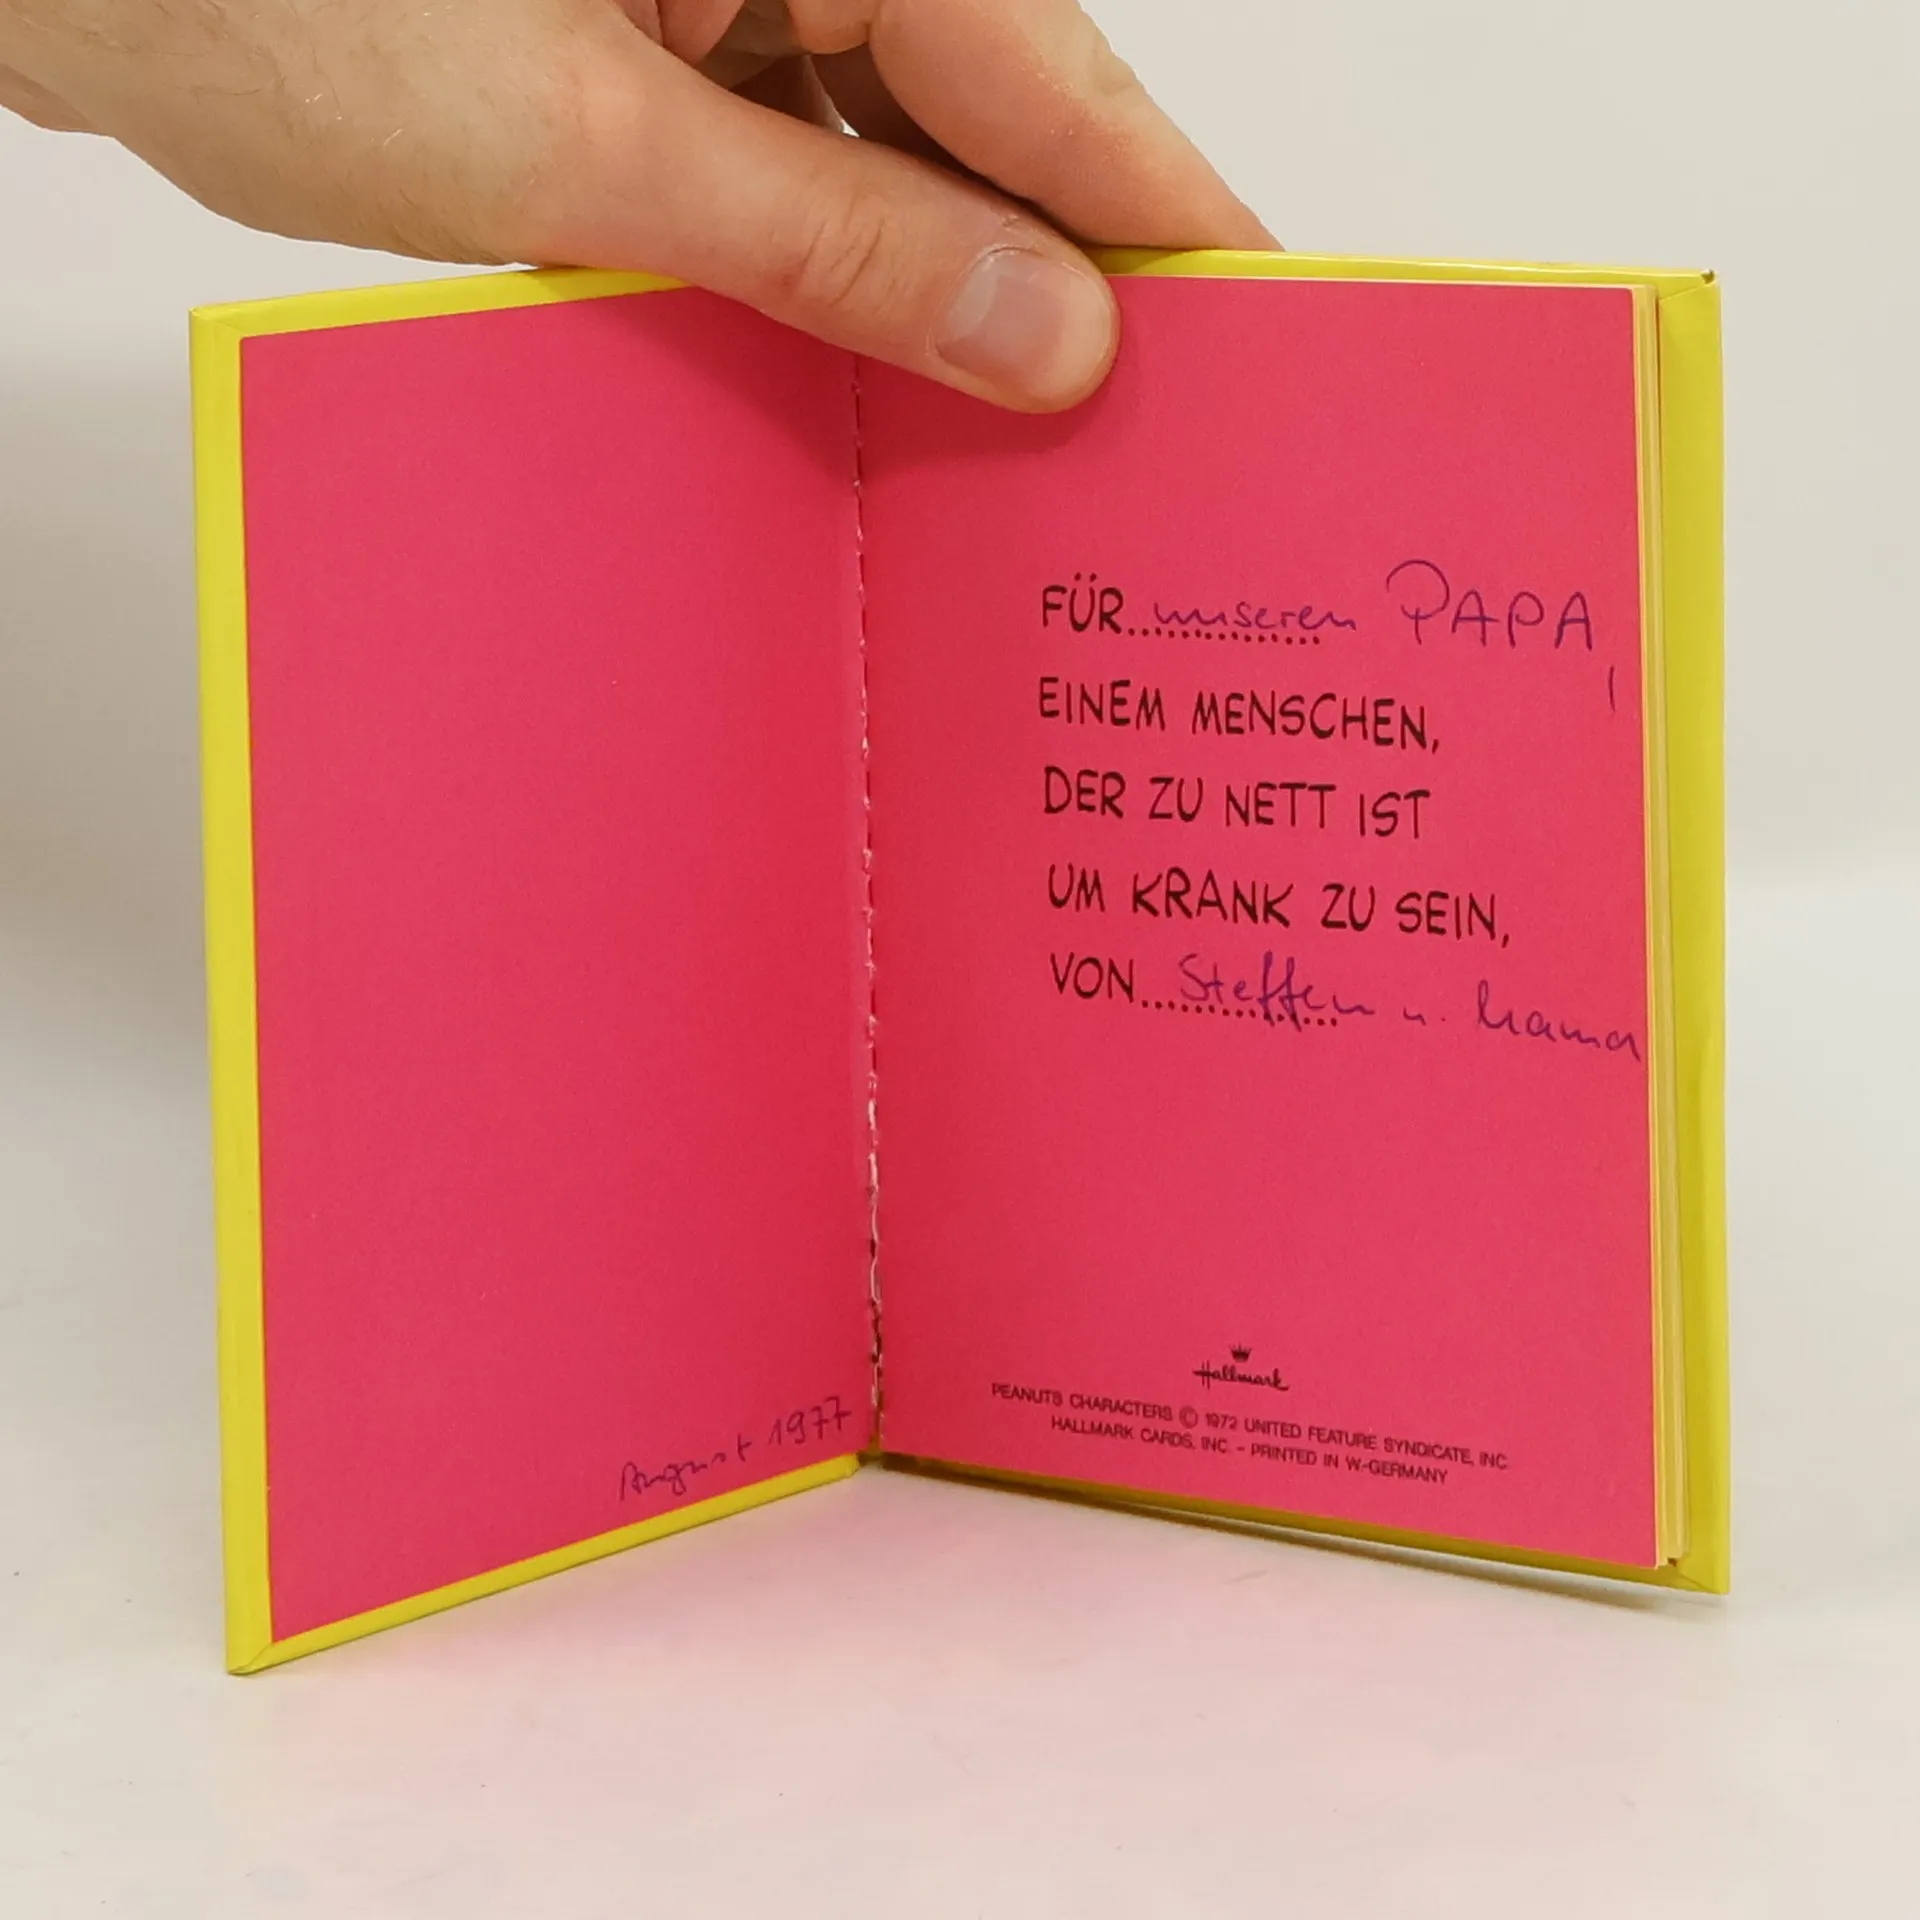 August 1977
FÜR..unseren PAPA,
EINEM MENSCHEN,
DER ZU NETT IST
UM KRANK ZU SEIN,
VON...Steffen u. Mama
Hallmark
PEANUTS CHARACTERS © 1972 UNITED FEATURE SYNDICATE, INC.
HALLMARK CARDS, INC. - PRINTED IN W.-GERMANY